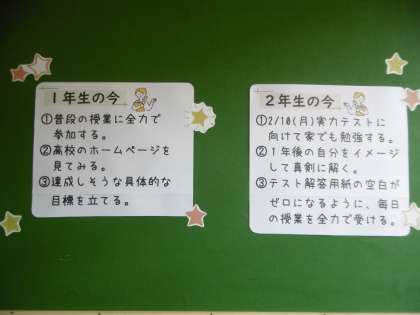 1年生の今
①普段の授業に全力で
参加する。
②高校のホームページを
見てみる。
③達成しそうな具体的な
目標を立てる。
2年生の今
①2/10(月)実力テストに
向けて家でも勉強する。
②1年後の自分をイメージ
して真剣に解く。
③テスト解答用紙の空白が
ゼロになるように、毎日
の授業を全力で受ける。